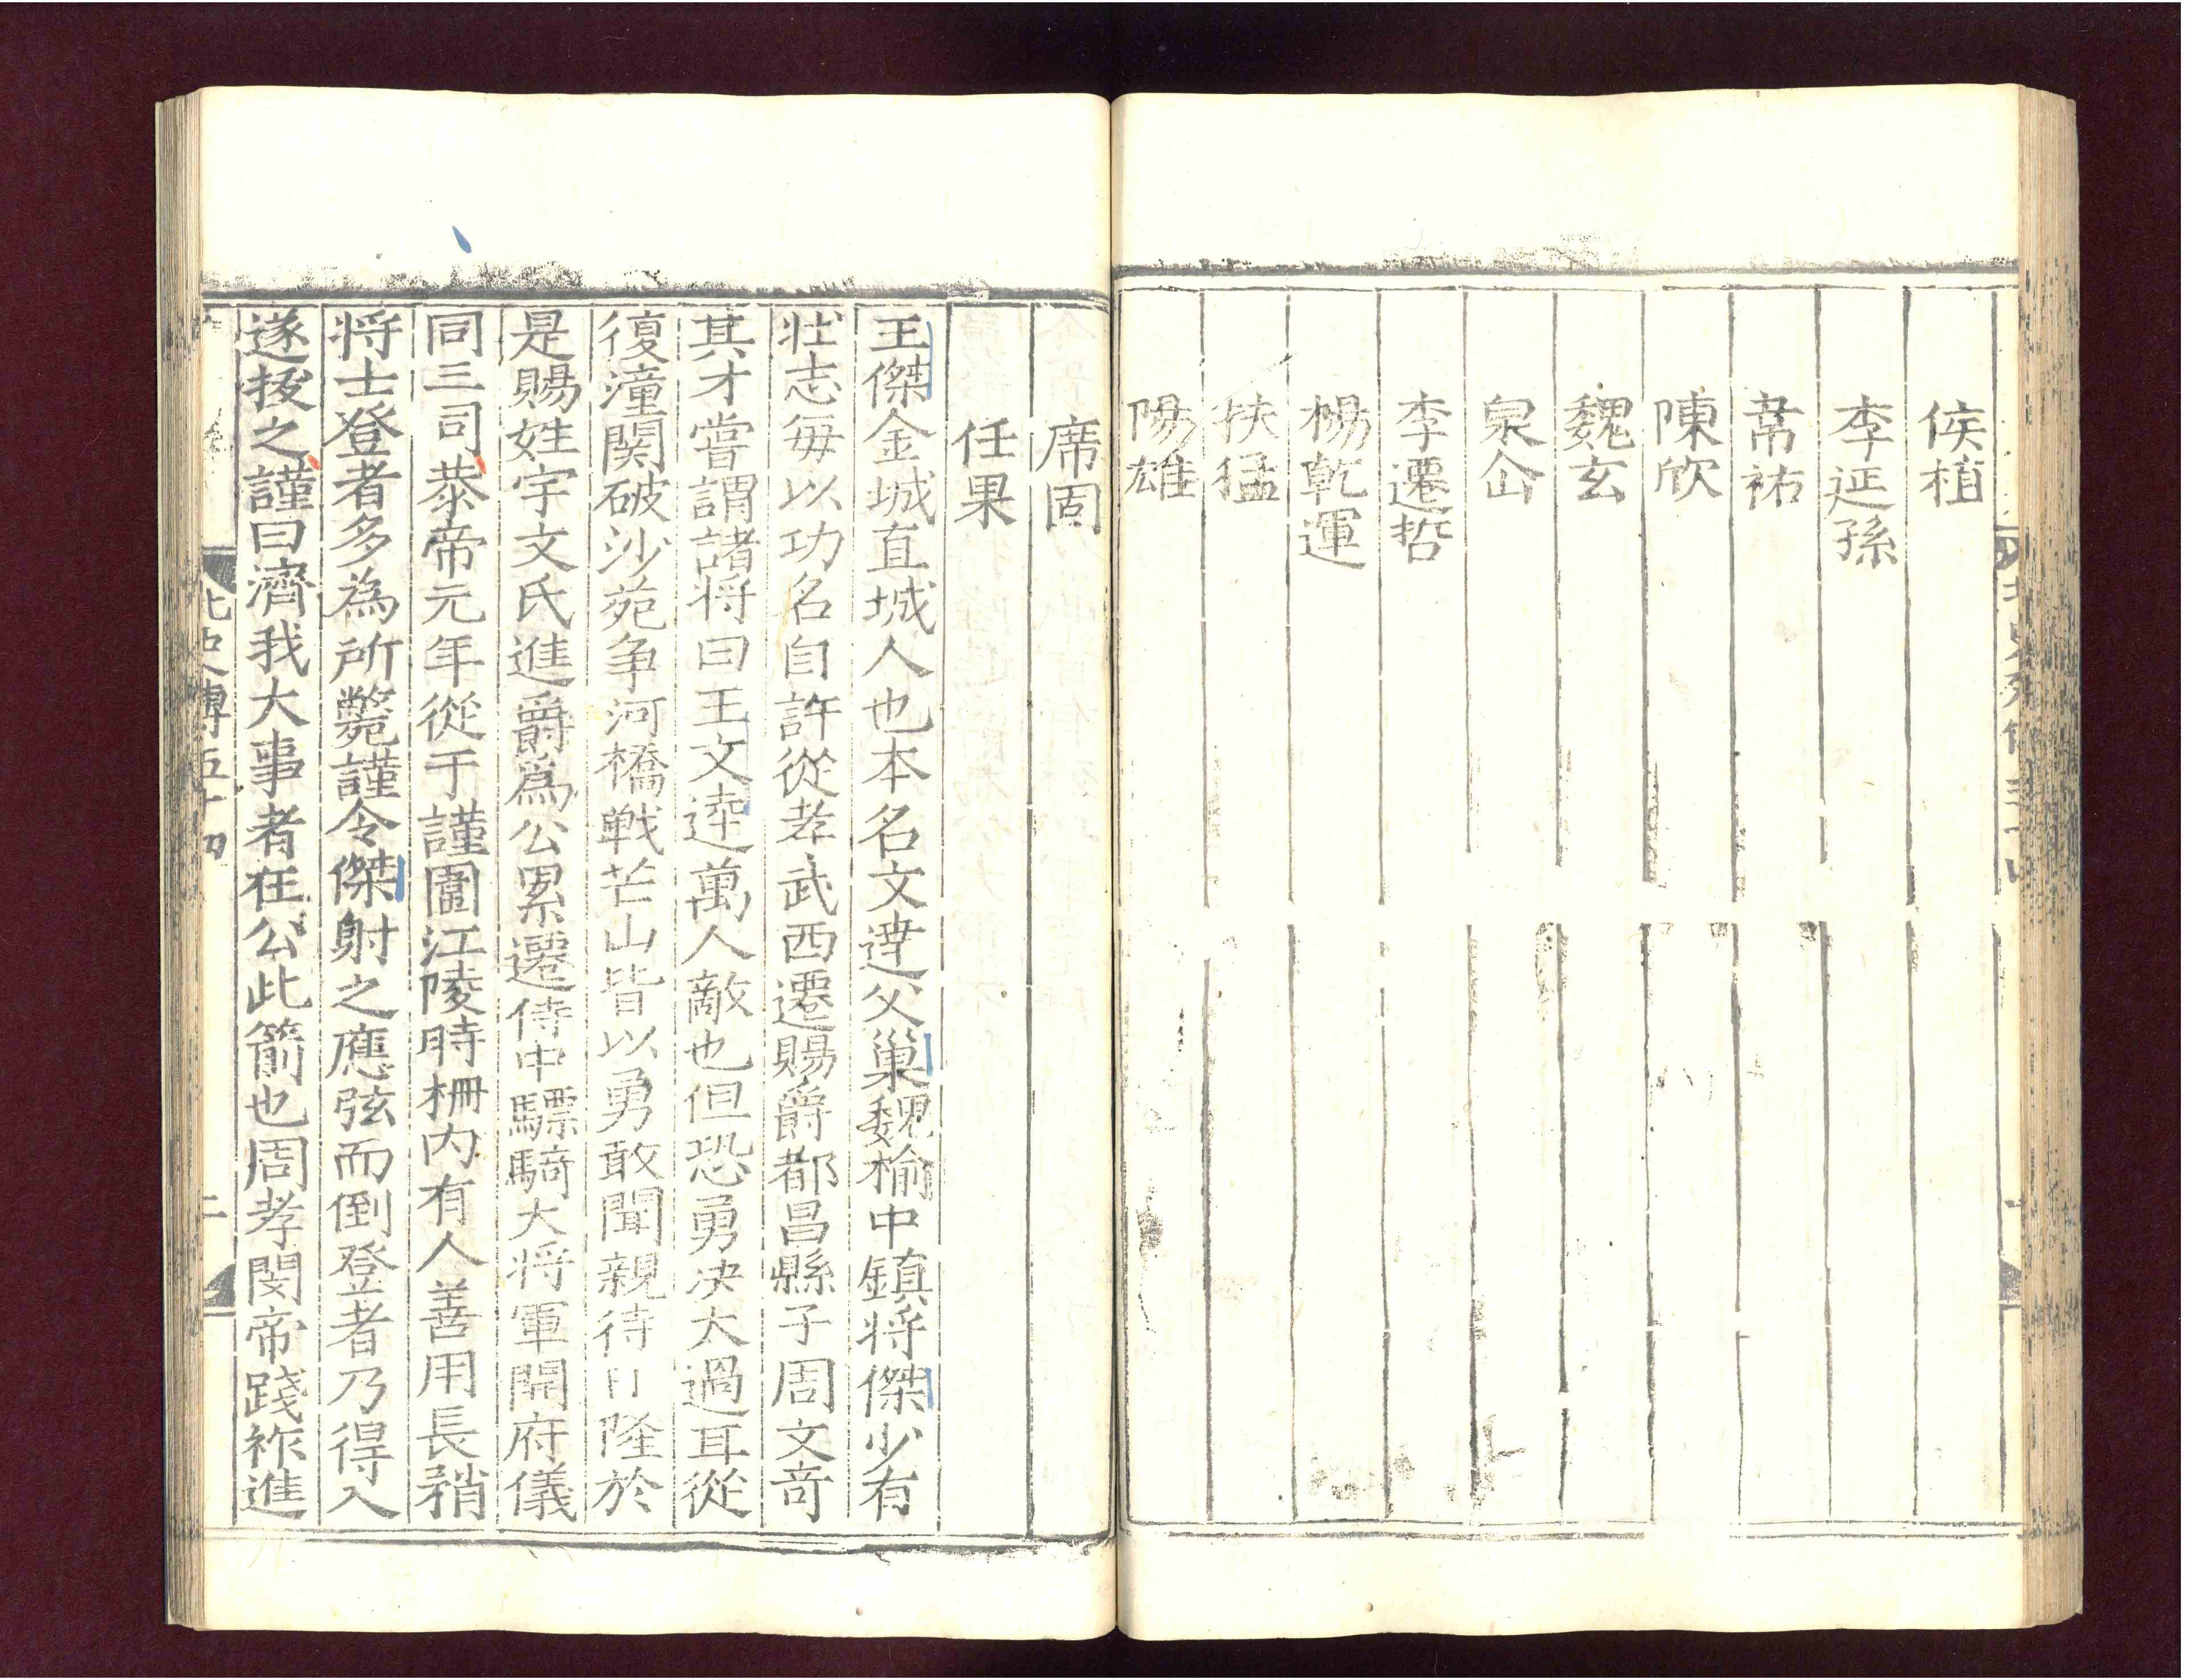 侯植
李延孫
韋祐
陳欣
魏玄
泉仚
李遷哲
楊乾運
扶猛
陽雄
席固
任果
王傑金城直城人也本名文達父巢魏榆中鎮将傑少有
壮志每以功名自許從孝武西遷賜爵都昌縣子周文竒
其才嘗謂諸将曰王文逹萬人敵也但恐勇决太過耳從
復潼関破沙苑争河橋戦芒山皆以勇敢聞親待日隆於
是賜姓宇文氏進爵爲公累遷侍中驃騎大将軍開府儀
同三司恭帝元年從于謹圍江陵時柵内有人善用長矟
将士登者多為所斃謹令傑射之應弦而倒登者乃得入
遂拔之謹曰濟我大事者在公此箭也周孝閔帝踐祚進
北史傳五十四
二